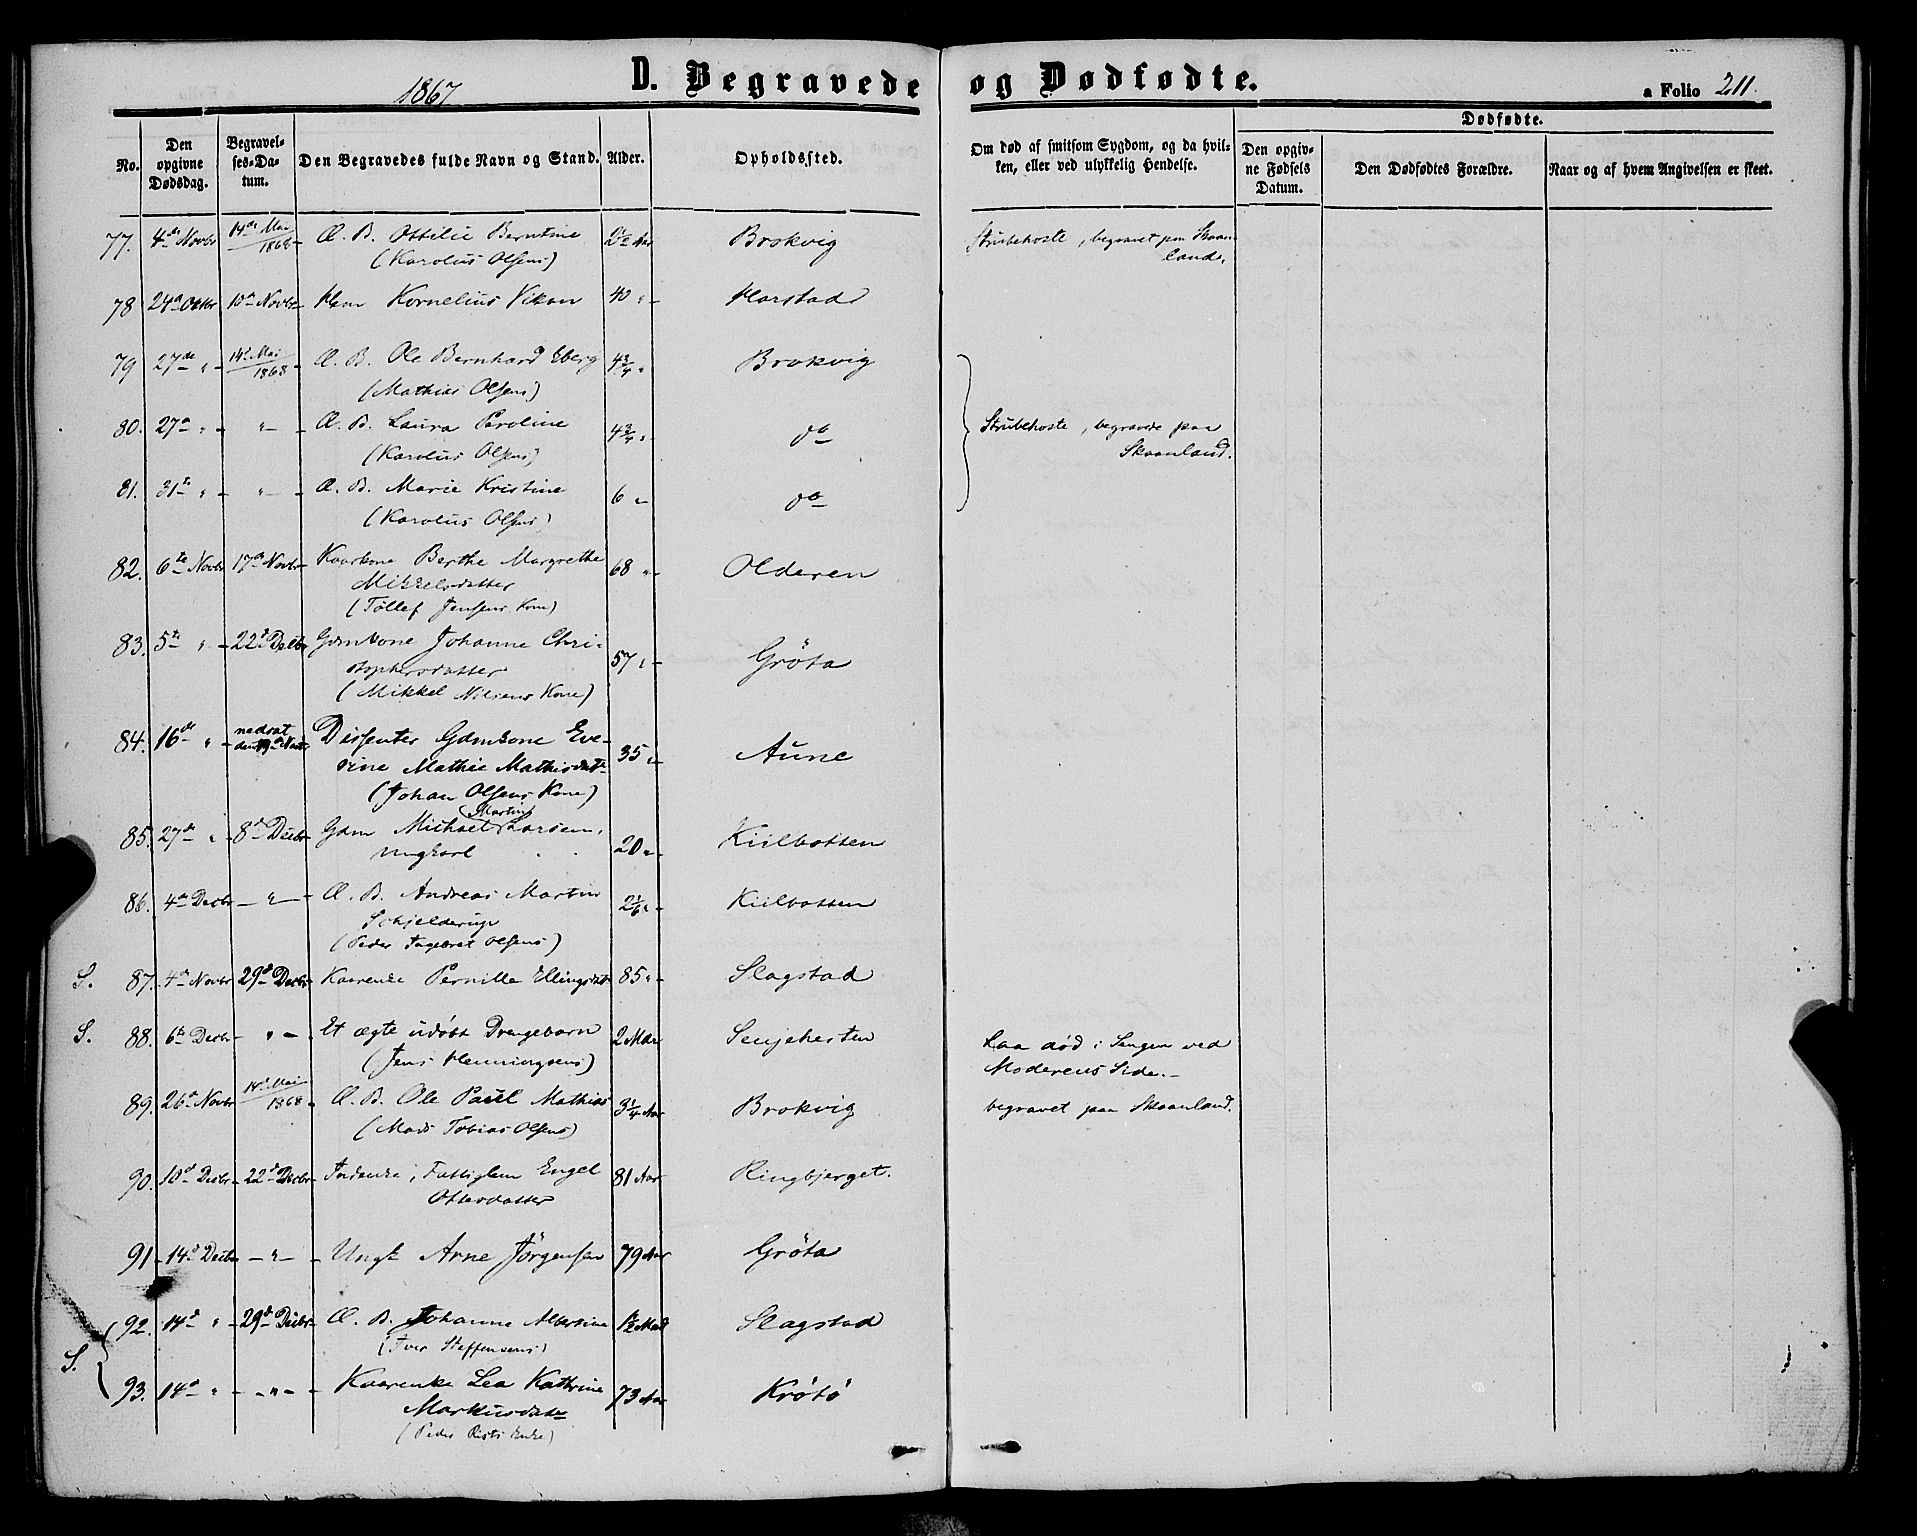 1867
D. Begravede og Dødfødte.
a Folio 211.
No.
Den opgivne Dødsdag.
Begravelses-Datum.
Den Begravedes fulde Navn og Stand.
Alder.
Opholdssted.
Om død af smitsom Sygdom, og da hvilken, eller ved ulykkelig Hendelse.
Dødfødte.
Den opgivne Fødsels Datum.
Den Dødfødtes Forældre.
Naar og af hvem Angivelsen er skeet.
77. 4de Novbr 14de Mai 1868 Æ. B. Ottilie Berntine 2½ Aar Brokvig Strubehoste, begravet paa Skaan-
(Karolus Olsens) land.
78 24de Oktbr 10de Novbr Kornelius Vikan 40 " Harstad
79 27de " 14de Mai 1868 Æ. B. Ole Bernhard Eberg 4¾ " Brokvig
(Mathias Olsens)
80. 27de " " Æ. B. Laura Paroline 4¾ " do Strubehoste, begravede paa
(Karolus Olsens) Skaanland.
81. 31te " " Æ. B. Marie Kristine 6 " do
(Karolus Olsens)
82. 6te Novbr 17de Novbr Kaarkone Berthe Margrethe 68 " Olderen
Mikkelsdatter
(Tollef Jensens Kone)
83. 5te " 22de Decbr Gdmkone Johanne Chri-
stophersdatter 57 " Gröta
(Mikkel Nilsens Kone)
84. 16de " nedsat den 19de Novbr Dissenter Gdmkone Eve-
rine Mathie Mathisdatr 35 " Aune
(Johan Olsens Kone)
85. 27de " 8de Decbr Gdm Michael (Martin) Larsen, 20 " Kiilbotten
ungkarl
86. 4de Decbr " Æ. B. Andreas Martin 2⅙ " Kiilbotten
Schjelderup
(Peder Ingebret Olsens)
S. 87. 4de Novbr 29de Decbr Kaarenke Pernille Ellingsdatr 85 " Slagstad
S. 88. 6te Decbr " Et ægte udøbt Drengebarn 2 Mdr Senjehesten Laa død i Sengen ved
(Jens Henningsens) Moderens Side.
89. 26de Novbr 14de Mai 1868 Æ. B. Ole Paul Mathias 3¼ Aar Brokvig begravet paa Skaanland.
(Mads Tobias Olsens)
90. 10de Decbr 22de Decbr Indenke, Fattiglem Engel 81 Aar Ringbjerget.
Ottersdatter
91 14de Decbr " Ungk Arne Jörgensen 79 Aar Gröta
S. 92. 14de " 29de Decbr Æ. B. Johanne Albertine 1½ Mdr Slagstad
(Iver Steffensens)
93. 14de " " Kaarenke Lea Kathrine 73 Aar Krötö
Markusdatr
(Peder Enke)